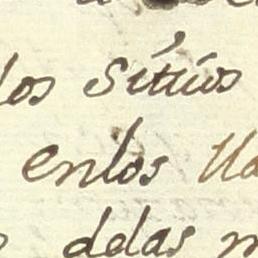 los sitiós
enlos lla
delas